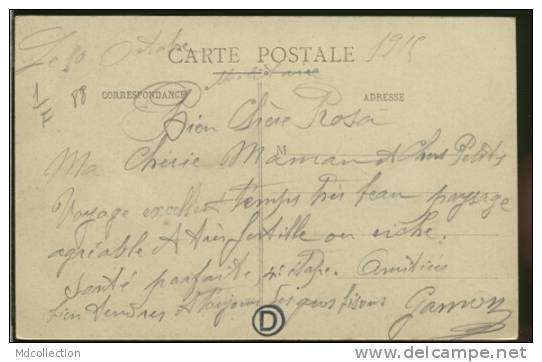 Le 30 Octobre 1915
CARTE POSTALE
Militaire
CORRESPONDANCE ADRESSE
88
Bien Chère Rosa
M
Ma Chérie Maman et Chers Petits
Voyage excellent temps très beau paysage
agréable et très fertille ou riche.
Santé parfaite, Amitiés
bien tendres et toujours les gros bisous Gaston
D
Mdcollection
www.delcampe.net